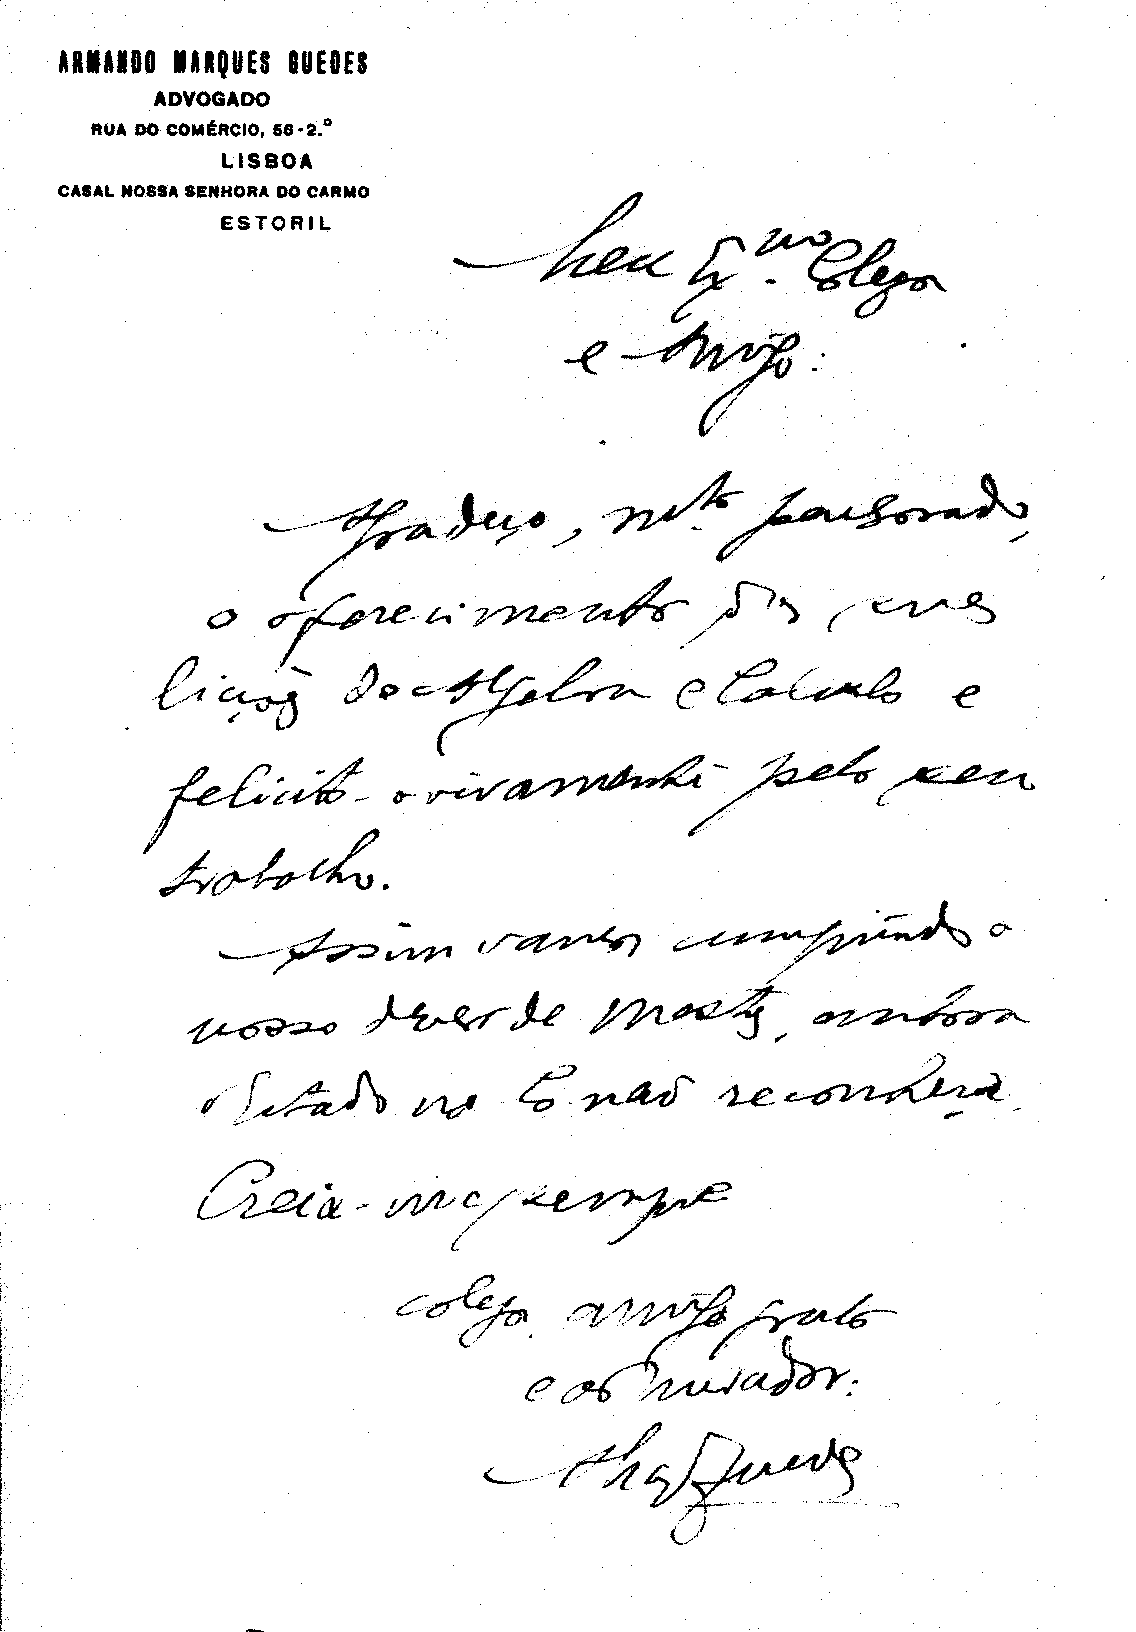 ARMANDO MARQUES GUEDES
ADVOGADO
RUA DO COMÉRCIO, 56-2.º
LISBOA
CASAL NOSSA SENHORA DO CARMO
ESTORIL
Meu Ex.mo Colega
e Amigo:
Agradeço, mt.to penhorado,
o oferecimento das suas
lições de Algebra e Calculo e
felicito-o vivamente pelo seu
trabalho.
Assim vamos cumprindo o
nosso dever de Mestres, embora
o Estado no-lo não reconheça.
Creia-me, sempre
colega amigo grato
e admirador:
A Marques Guedes